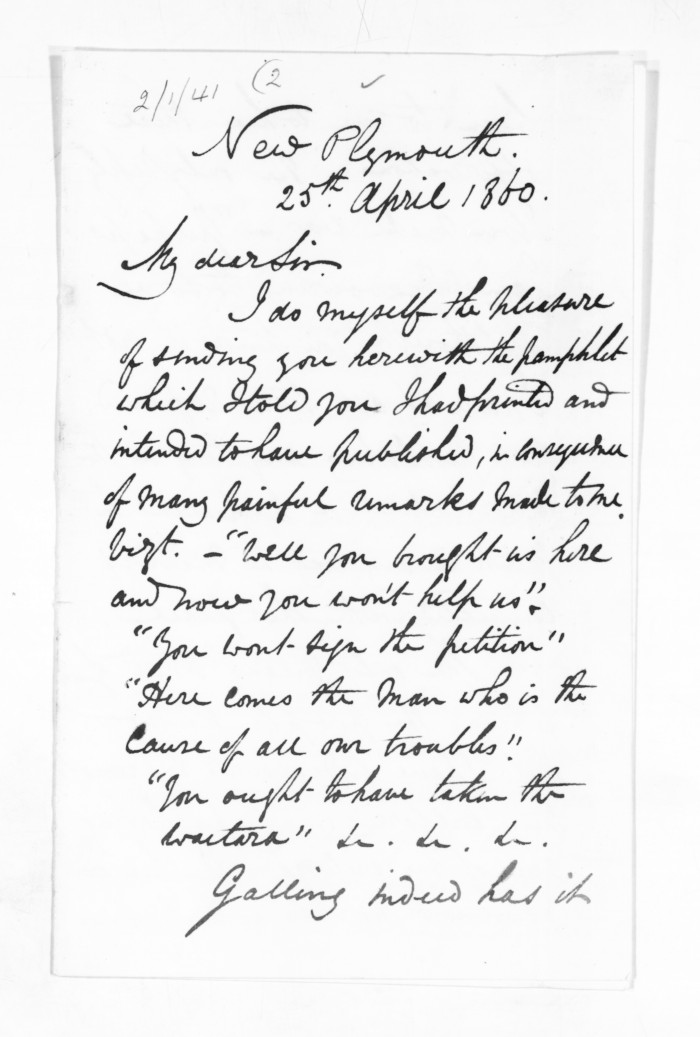 2/1/41 (2
New Plymouth.
25th. April 1860.
My dear Sir.
I do myself the pleasure
of sending you herewith the pamphlet
which I told you I had printed and
intended to have published, in consequence
of many painful remarks made to me.
vizt. - "Well you brought us here
and now you won't help us".
"You wont sign the petition"
"Here comes the man who is the
Cause of all our troubles".
"You ought to have taken the
Waitara" &c. &c. &c.
Galling indeed has it